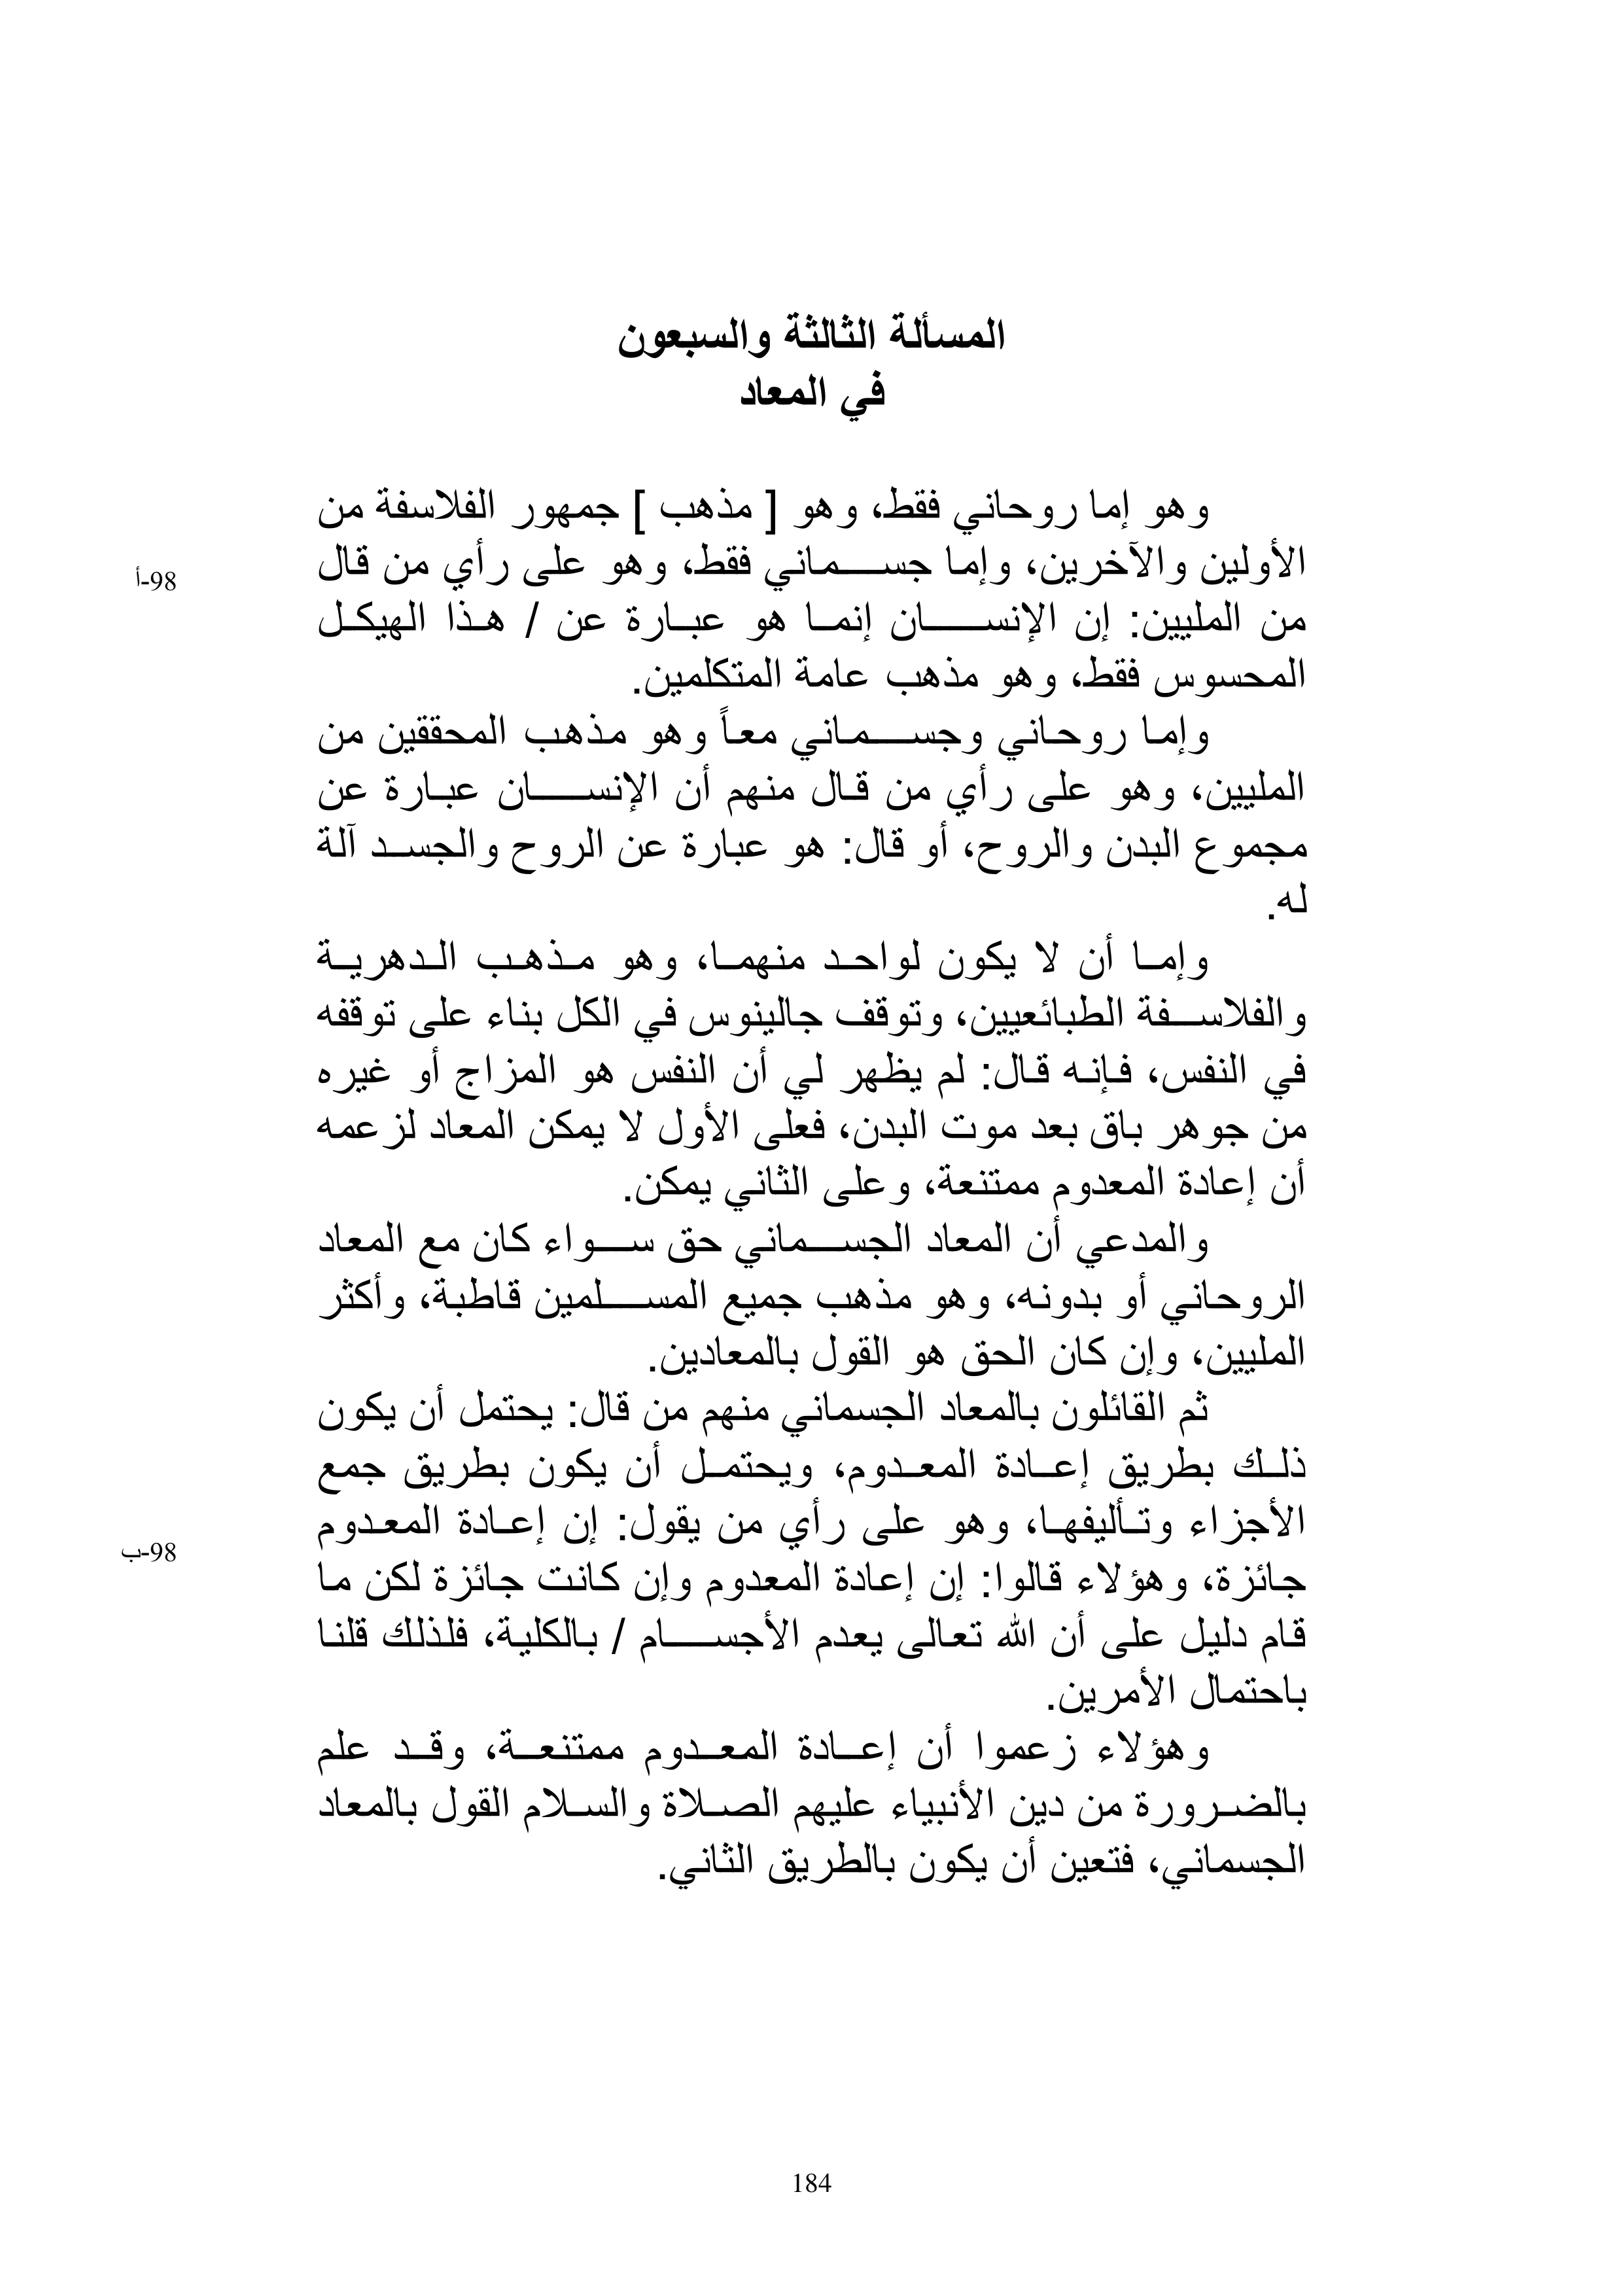 المسألة الثالثة والسبعون
في المعاد
وهو إما روحاني فقط، وهو [ مذهب ] جمهور الفلاسفة من
الأولين والآخرين، وإما جسماني فقط، وهو على رأي من قال
98-أ
من المليين: إن الإنسان إنما هو عبارة عن / هذا الهيكل
المحسوس فقط، وهو مذهب عامة المتكلمين.
وإما روحاني وجسماني معاً وهو مذهب المحققين من
المليين، وهو على رأي من قال منهم أن الإنسان عبارة عن
مجموع البدن والروح، أو قال: هو عبارة عن الروح والجسد آلة
له.
وإما أن لا يكون لواحد منهما، وهو مذهب الدهرية
والفلاسفة الطبائعيين، وتوقف جالينوس في الكل بناء على توقفه
في النفس، فإنه قال: لم يظهر لي أن النفس هو المزاج أو غيره
من جوهر باق بعد موت البدن، فعلى الأول لا يمكن المعاد لزعمه
أن إعادة المعدوم ممتنعة، وعلى الثاني يمكن.
والمدعي أن المعاد الجسماني حق سواء كان مع المعاد
الروحاني أو بدونه، وهو مذهب جميع المسلمين قاطبة، وأكثر
المليين، وإن كان الحق هو القول بالمعادين.
ثم القائلون بالمعاد الجسماني منهم من قال: يحتمل أن يكون
ذلك بطريق إعادة المعدوم، ويحتمل أن يكون بطريق جمع
الأجزاء وتأليفها، وهو على رأي من يقول: إن إعادة المعدوم
98-ب
جائزة، وهؤلاء قالوا: إن إعادة المعدوم وإن كانت جائزة لكن ما
قام دليل على أن الله تعالى يعدم الأجسام / بالكلية، فلذلك قلنا
باحتمال الأمرين.
وهؤلاء زعموا أن إعادة المعدوم ممتنعة، وقد علم
بالضرورة من دين الأنبياء عليهم الصلاة والسلام القول بالمعاد
الجسماني، فتعين أن يكون بالطريق الثاني.
184